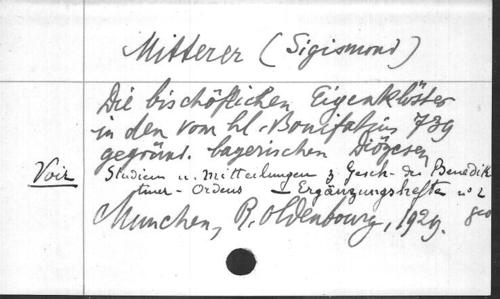 Mitterer (Sigismond)
Die bischöflichen Eigenklöster
in den vom hl. Bonifatius 739
gegründ. bayerischen Diözesen
Voir Studien u. Mitteilungen z. Gesch. des Benedik
tiner-Ordens — Ergänzungshefte no 2
München, R. Oldenbourg, 1929. 8vo